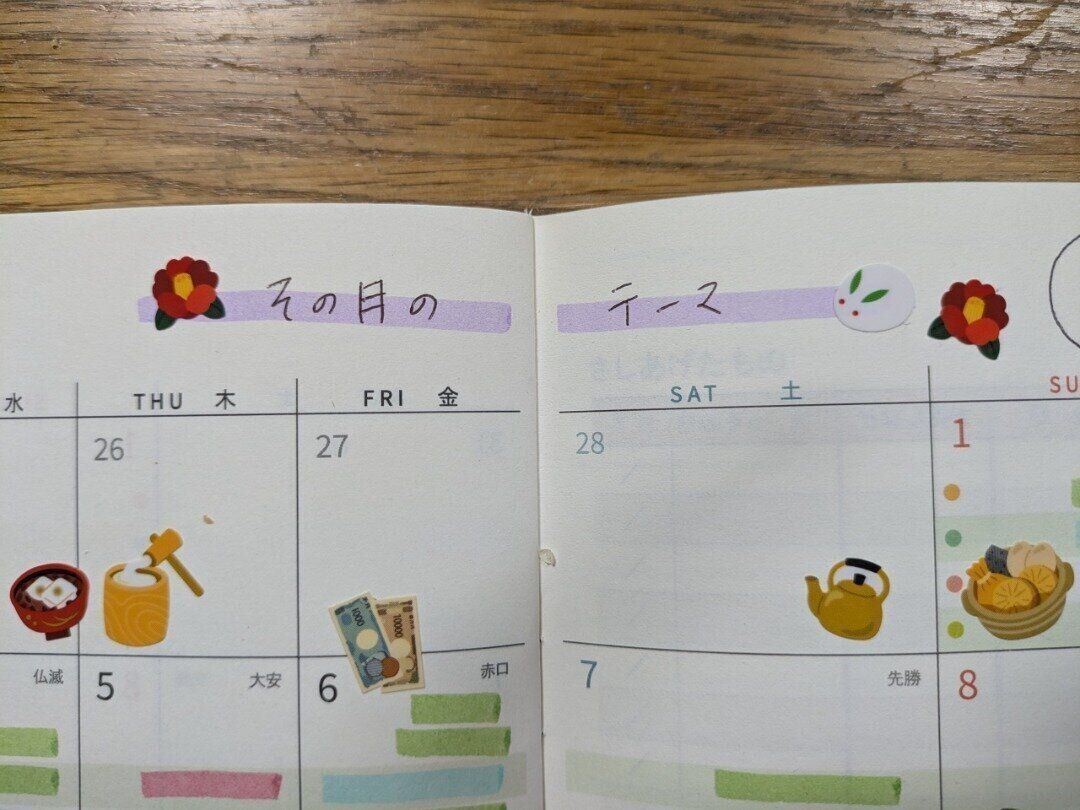 その月の テーマ
水 THU 木 FRI 金 SAT 土 SU
26 27 28 1
1000 10000
仏滅 5 大安 6 赤口 7 先勝 8